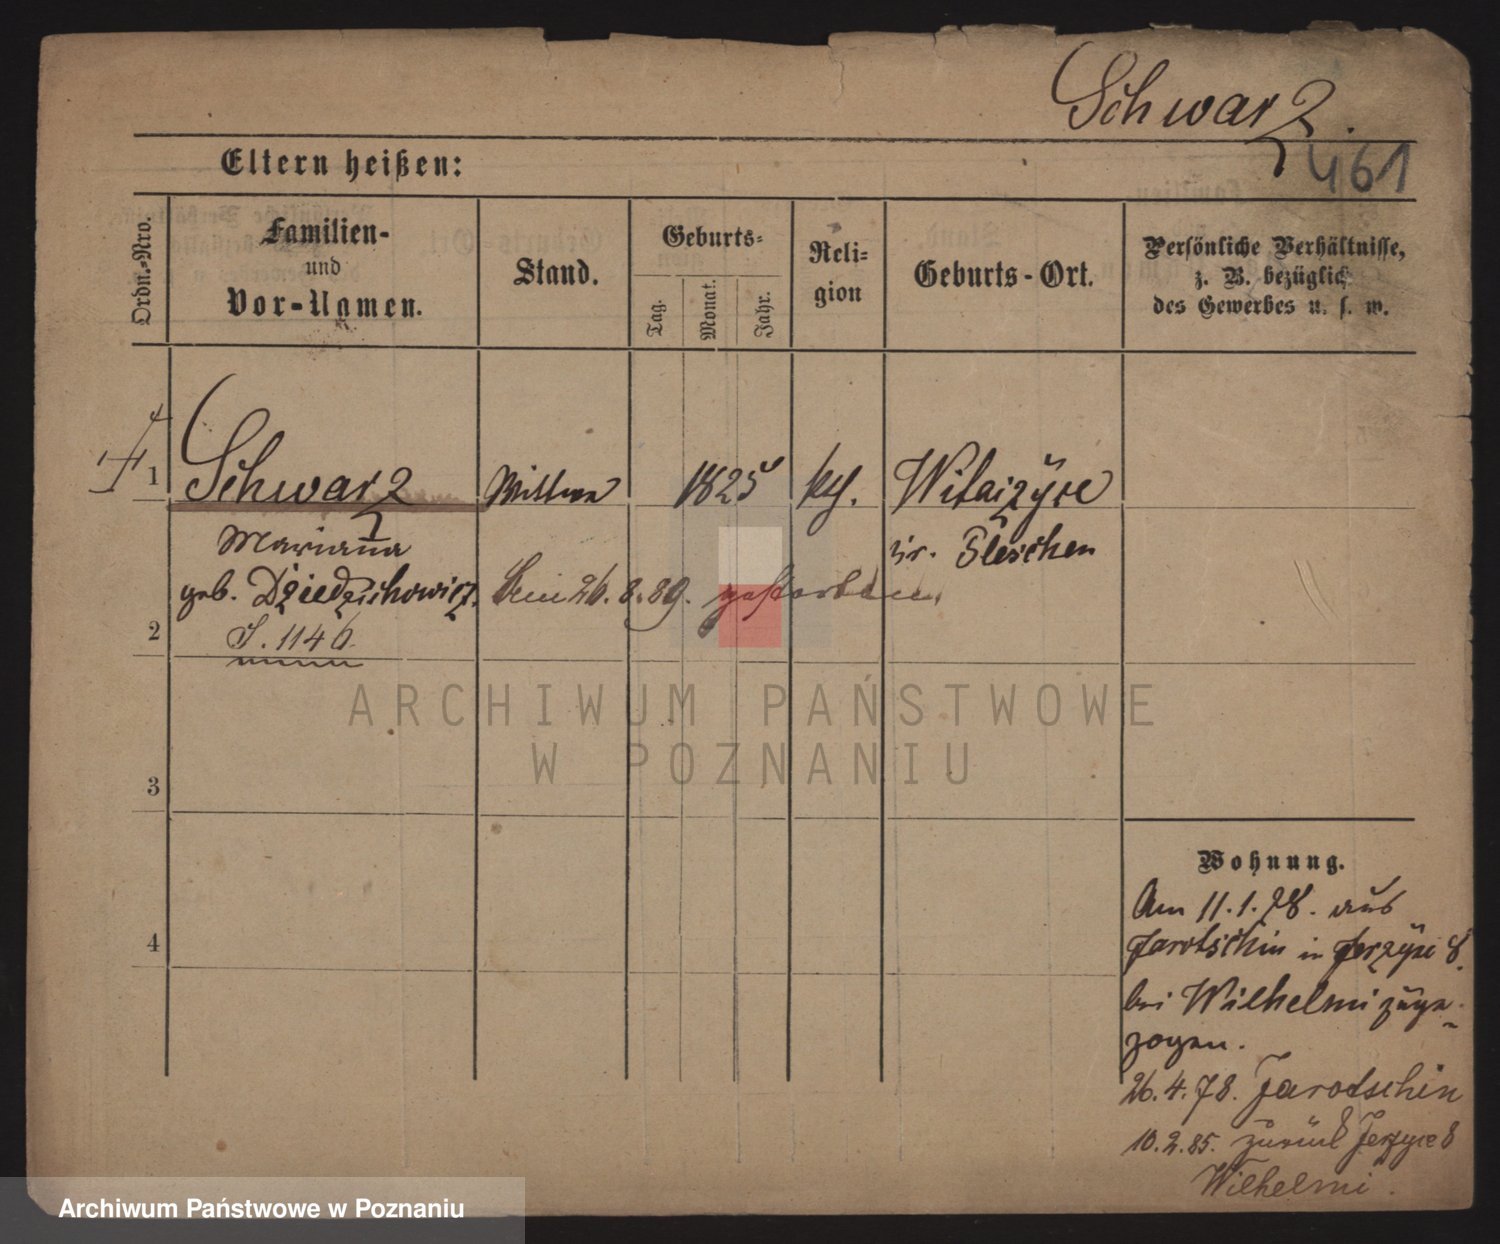 Schwarz.
461
Eltern heißen:
Ordn.-Nro.
Familien-
und
Vor-Namen.
Stand.
Geburts-
Tag.
Monat.
Jahr.
Reli-
gion
Geburts-Ort.
Persönliche Verhältnisse,
z. B. bezüglich
des Gewerbes u. s. w.
1
Schwarz
Wittwe
1825
kth.
Witaizÿce
Mariana
Kr. Pleschen
geb. Dziedzichowicz.
Am 26.8.89. gestorben.
2
S. 1146
ARCHIWUM PAŃSTWOWE
W POZNANIU
3
Wohnung.
4
Am 11.1.78. aus
Jarotschin in Jerzÿce 8.
bei Wilhelmi zuge-
zogen.
26.4.78. Jarotschin
10.2.85. zurück Jerzyce 8
Wilhelmi.
Archiwum Państwowe w Poznaniu